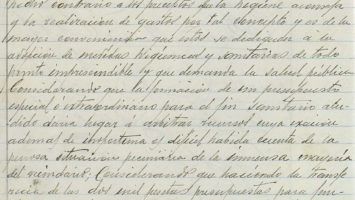 contrario a los preceptos que la higiene aconseja
y la realización de gastos por tal concepto y es de la
mayor conveniencia que estos se dediquen a la
adopción de medidas higiénicas y sanitarias de todo
punto imprescindible y que demanda la salud pública
Considerando que la formación de un presupuesto
especial o extraordinario para el fin sanitario alu-
dido daria lugar á arbitrar recursos cuya exacción
ademas de inoportuna es dificil habida cuenta de la
penosa situacion pecuniaria de la inmensa mayoria
del vecindario. Considerando que haciendo la transfe-
rencia de las dos mil pesetas presupuestas para fun-